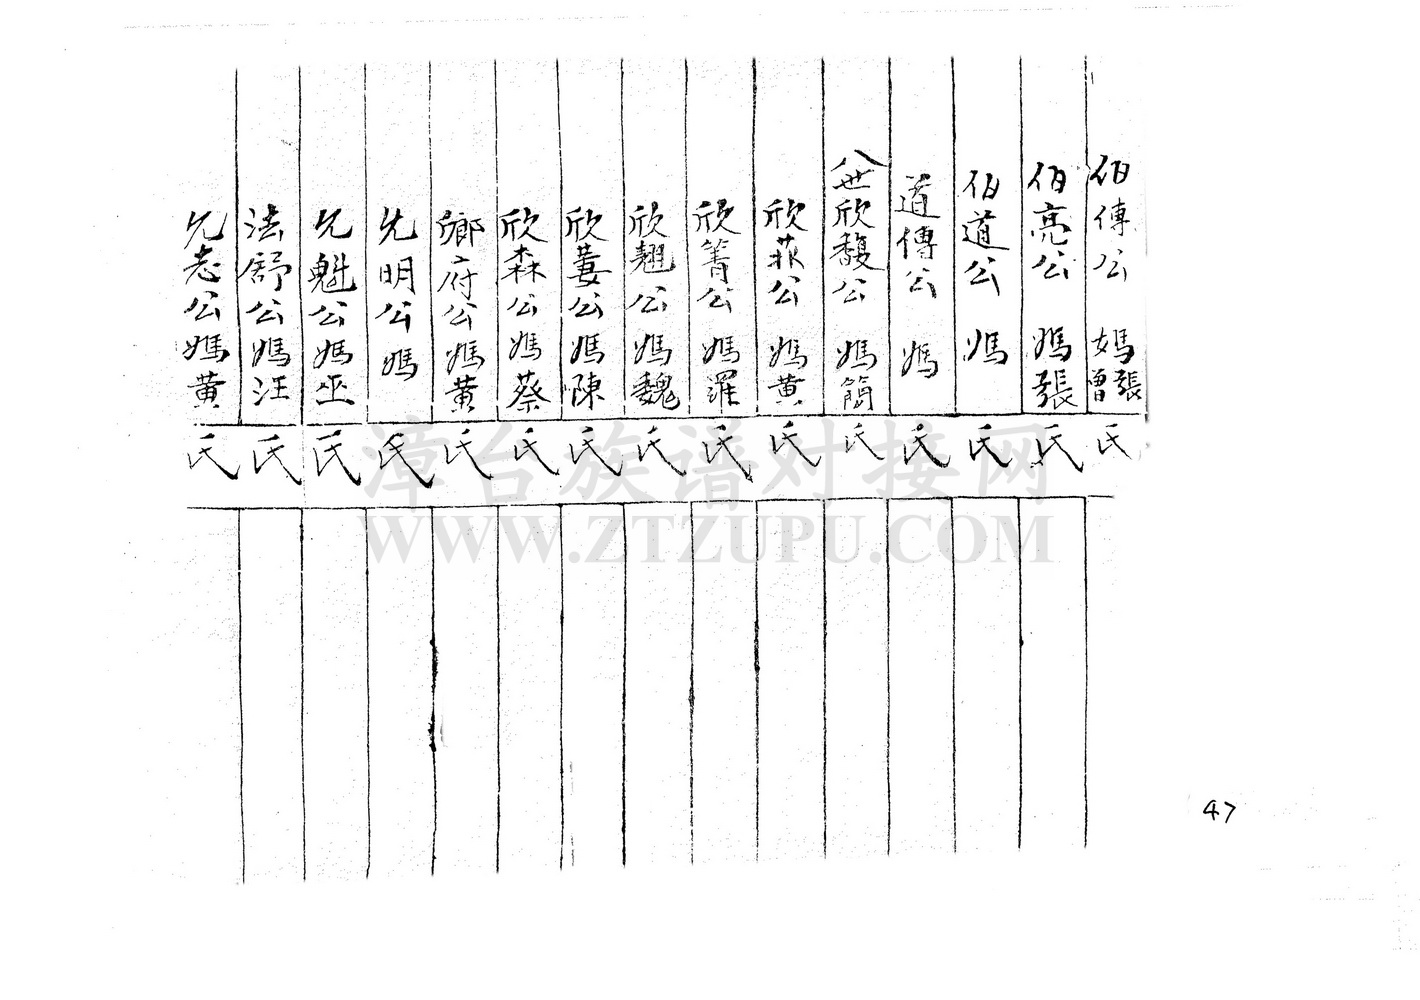 伯傳公 媽張曾氏
伯亮公 媽張氏
伯道公 媽氏
道傳公 媽氏
八世欣馥公 媽簡氏
欣菲公媽黄氏
欣箐公媽羅氏
欣翹公媽魏氏
欣萋公媽陳氏
欣森公媽蔡氏
鄉府公媽黄氏
先明公媽氏
允魁公媽巫氏
法舒公媽汪氏
允志公媽黄氏
漳台族谱对接网
WWW.ZTZUPU.COM
47